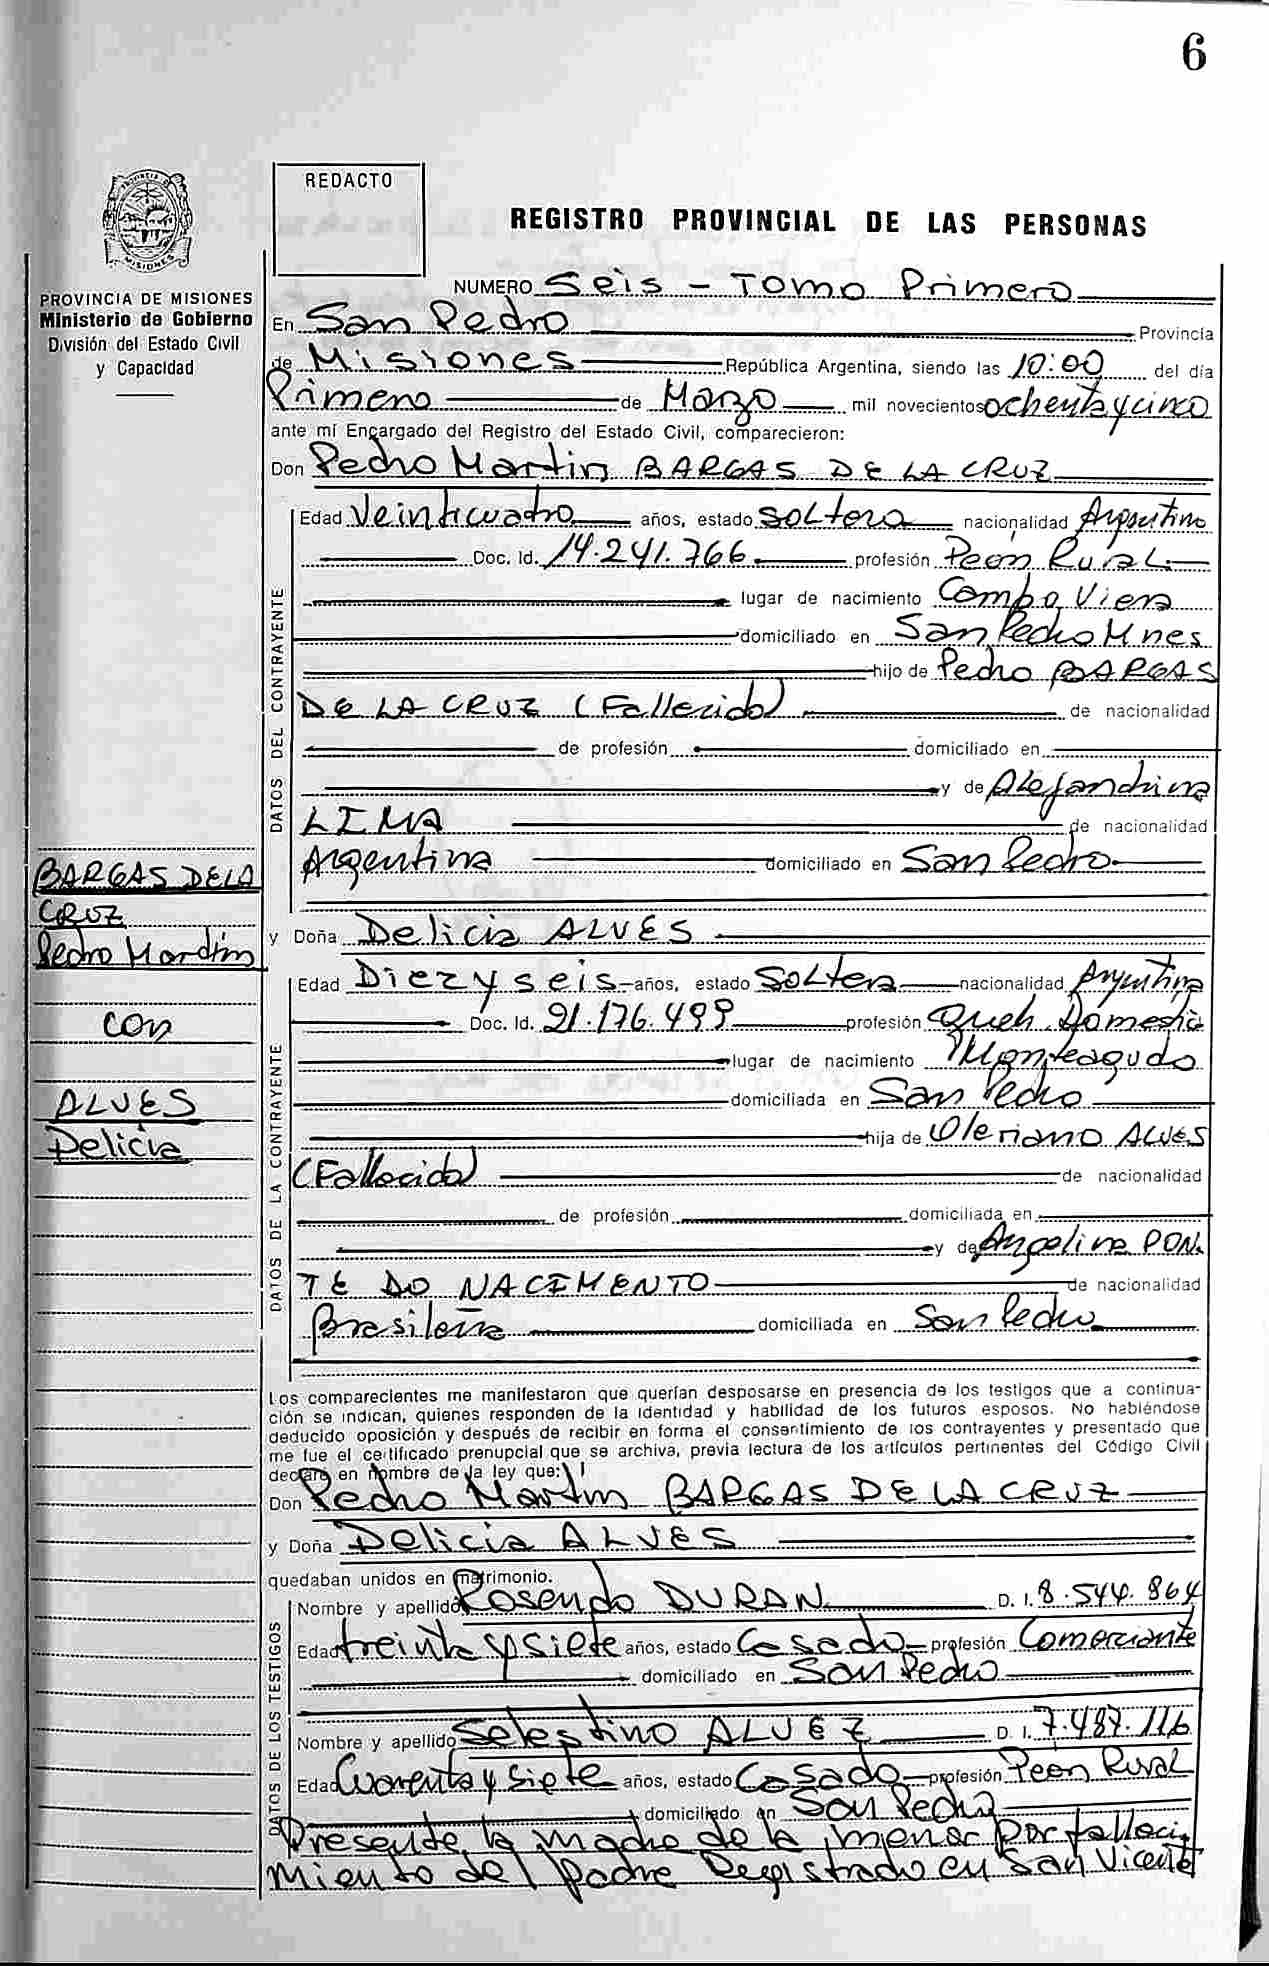 6
PROVINCIA DE MISIONES
REDACTO
REGISTRO PROVINCIAL DE LAS PERSONAS
PROVINCIA DE MISIONES
Ministerio de Gobierno
División del Estado Civil
y Capacidad
NUMERO Seis - Tomo Primero
En San Pedro Provincia
de Misiones República Argentina, siendo las 10:00 del día
Primero de Marzo mil novecientos ochenta y cinco
ante mí Encargado del Registro del Estado Civil, comparecieron:
Don Pedro Martin BARGAS DE LA CRUZ
DATOS DEL CONTRAYENTE
Edad Veinticuatro años, estado soltero nacionalidad Argentino
Doc. Id. 14.241.766 profesión Peón Rural
lugar de nacimiento Campo Viera
domiciliado en San Pedro Mnes
hijo de Pedro BARGAS
DE LA CRUZ (Fallecido) de nacionalidad
de profesión domiciliado en
y de Alejandrina
LIMA de nacionalidad
Argentina domiciliado en San Pedro
BARGAS DE LA
CRUZ
Pedro Martin
con
ALVES
Delicia
y Doña Delicia ALVES
DATOS DE LA CONTRAYENTE
Edad Diez y seis años, estado Soltera nacionalidad Argentina
Doc. Id. 21.176.499 profesión Queh. Domestic
lugar de nacimiento Monteagudo
domiciliada en San Pedro
hija de Oleriano ALVES
(Fallecido) de nacionalidad
de profesión domiciliada en
y de Angelina PON.
TE DO NACIMENTO de nacionalidad
Brasileña domiciliada en San Pedro
Los comparecientes me manifestaron que querían desposarse en presencia de los testigos que a continua-
ción se indican, quienes responden de la identidad y habilidad de los futuros esposos. No habiéndose
deducido oposición y después de recibir en forma el consentimiento de los contrayentes y presentado que
me fue el certificado prenupcial que se archiva, previa lectura de los artículos pertinentes del Código Civil
declaro en nombre de la ley que:
Don Pedro Martin BARGAS DE LA CRUZ
y Doña Delicia ALVES
quedaban unidos en matrimonio.
DATOS DE LOS TESTIGOS
Nombre y apellido Rosendo DURAN D. I. 8.544.864
Edad treinta y siete años, estado Casado profesión Comerciante
domiciliado en San Pedro
Nombre y apellido Selestino ALVEZ D. I. 7.487.116
Edad Cuarenta y siete años, estado Casado profesión Peón Rural
domiciliado en San Pedro
Presente la madre de la menor por falleci
miento del padre Registrado en San Vicente